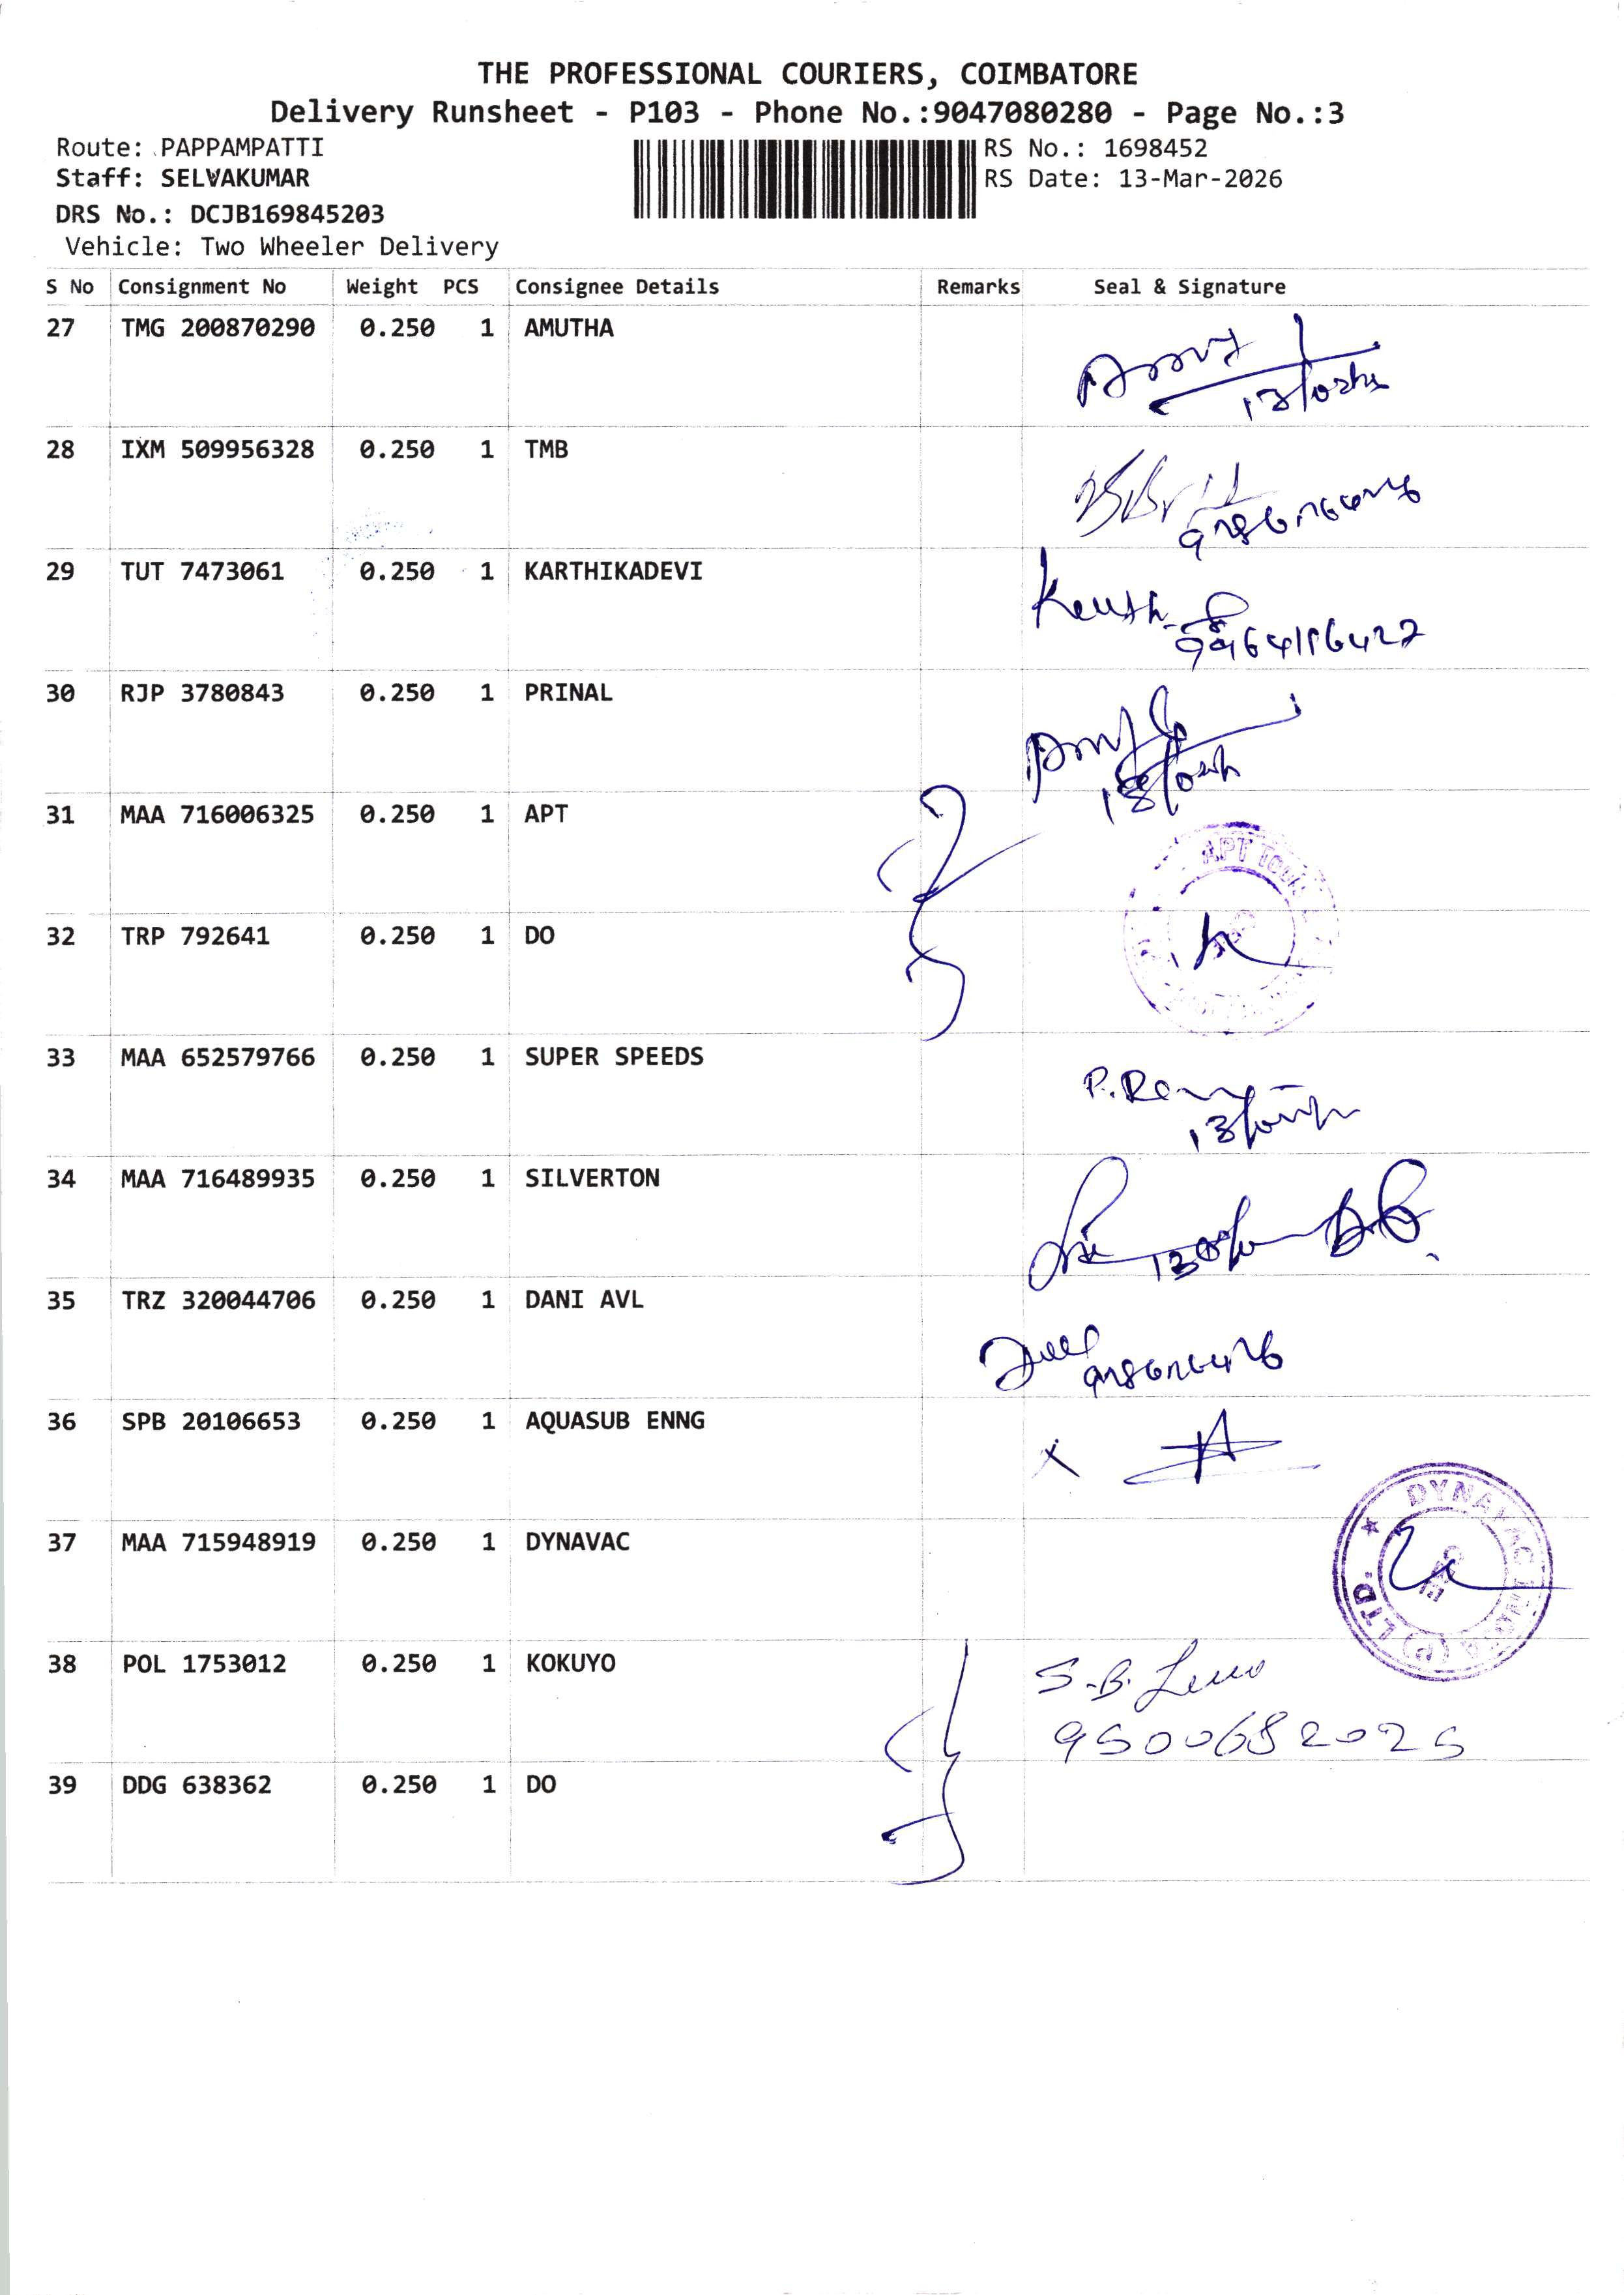 THE PROFESSIONAL COURIERS, COIMBATORE
Delivery Runsheet - P103 - Phone No.:9047080280 - Page No.:3
Route: PAPPAMPATTI
Staff: SELVAKUMAR
DRS No.: DCJB169845203
Vehicle: Two Wheeler Delivery
RS No.: 1698452
RS Date: 13-Mar-2026
S No Consignment No Weight PCS Consignee Details Remarks Seal & Signature
27 TMG 200870290 0.250 1 AMUTHA
28 IXM 509956328 0.250 1 TMB
29 TUT 7473061 0.250 1 KARTHIKADEVI
30 RJP 3780843 0.250 1 PRINAL
31 MAA 716006325 0.250 1 APT
APT
32 TRP 792641 0.250 1 DO
33 MAA 652579766 0.250 1 SUPER SPEEDS
34 MAA 716489935 0.250 1 SILVERTON
35 TRZ 320044706 0.250 1 DANI AVL
36 SPB 20106653 0.250 1 AQUASUB ENNG
37 MAA 715948919 0.250 1 DYNAVAC
DYNAVAC INDIA (P) LTD. ★
38 POL 1753012 0.250 1 KOKUYO
S.B.
9500682025
39 DDG 638362 0.250 1 DO